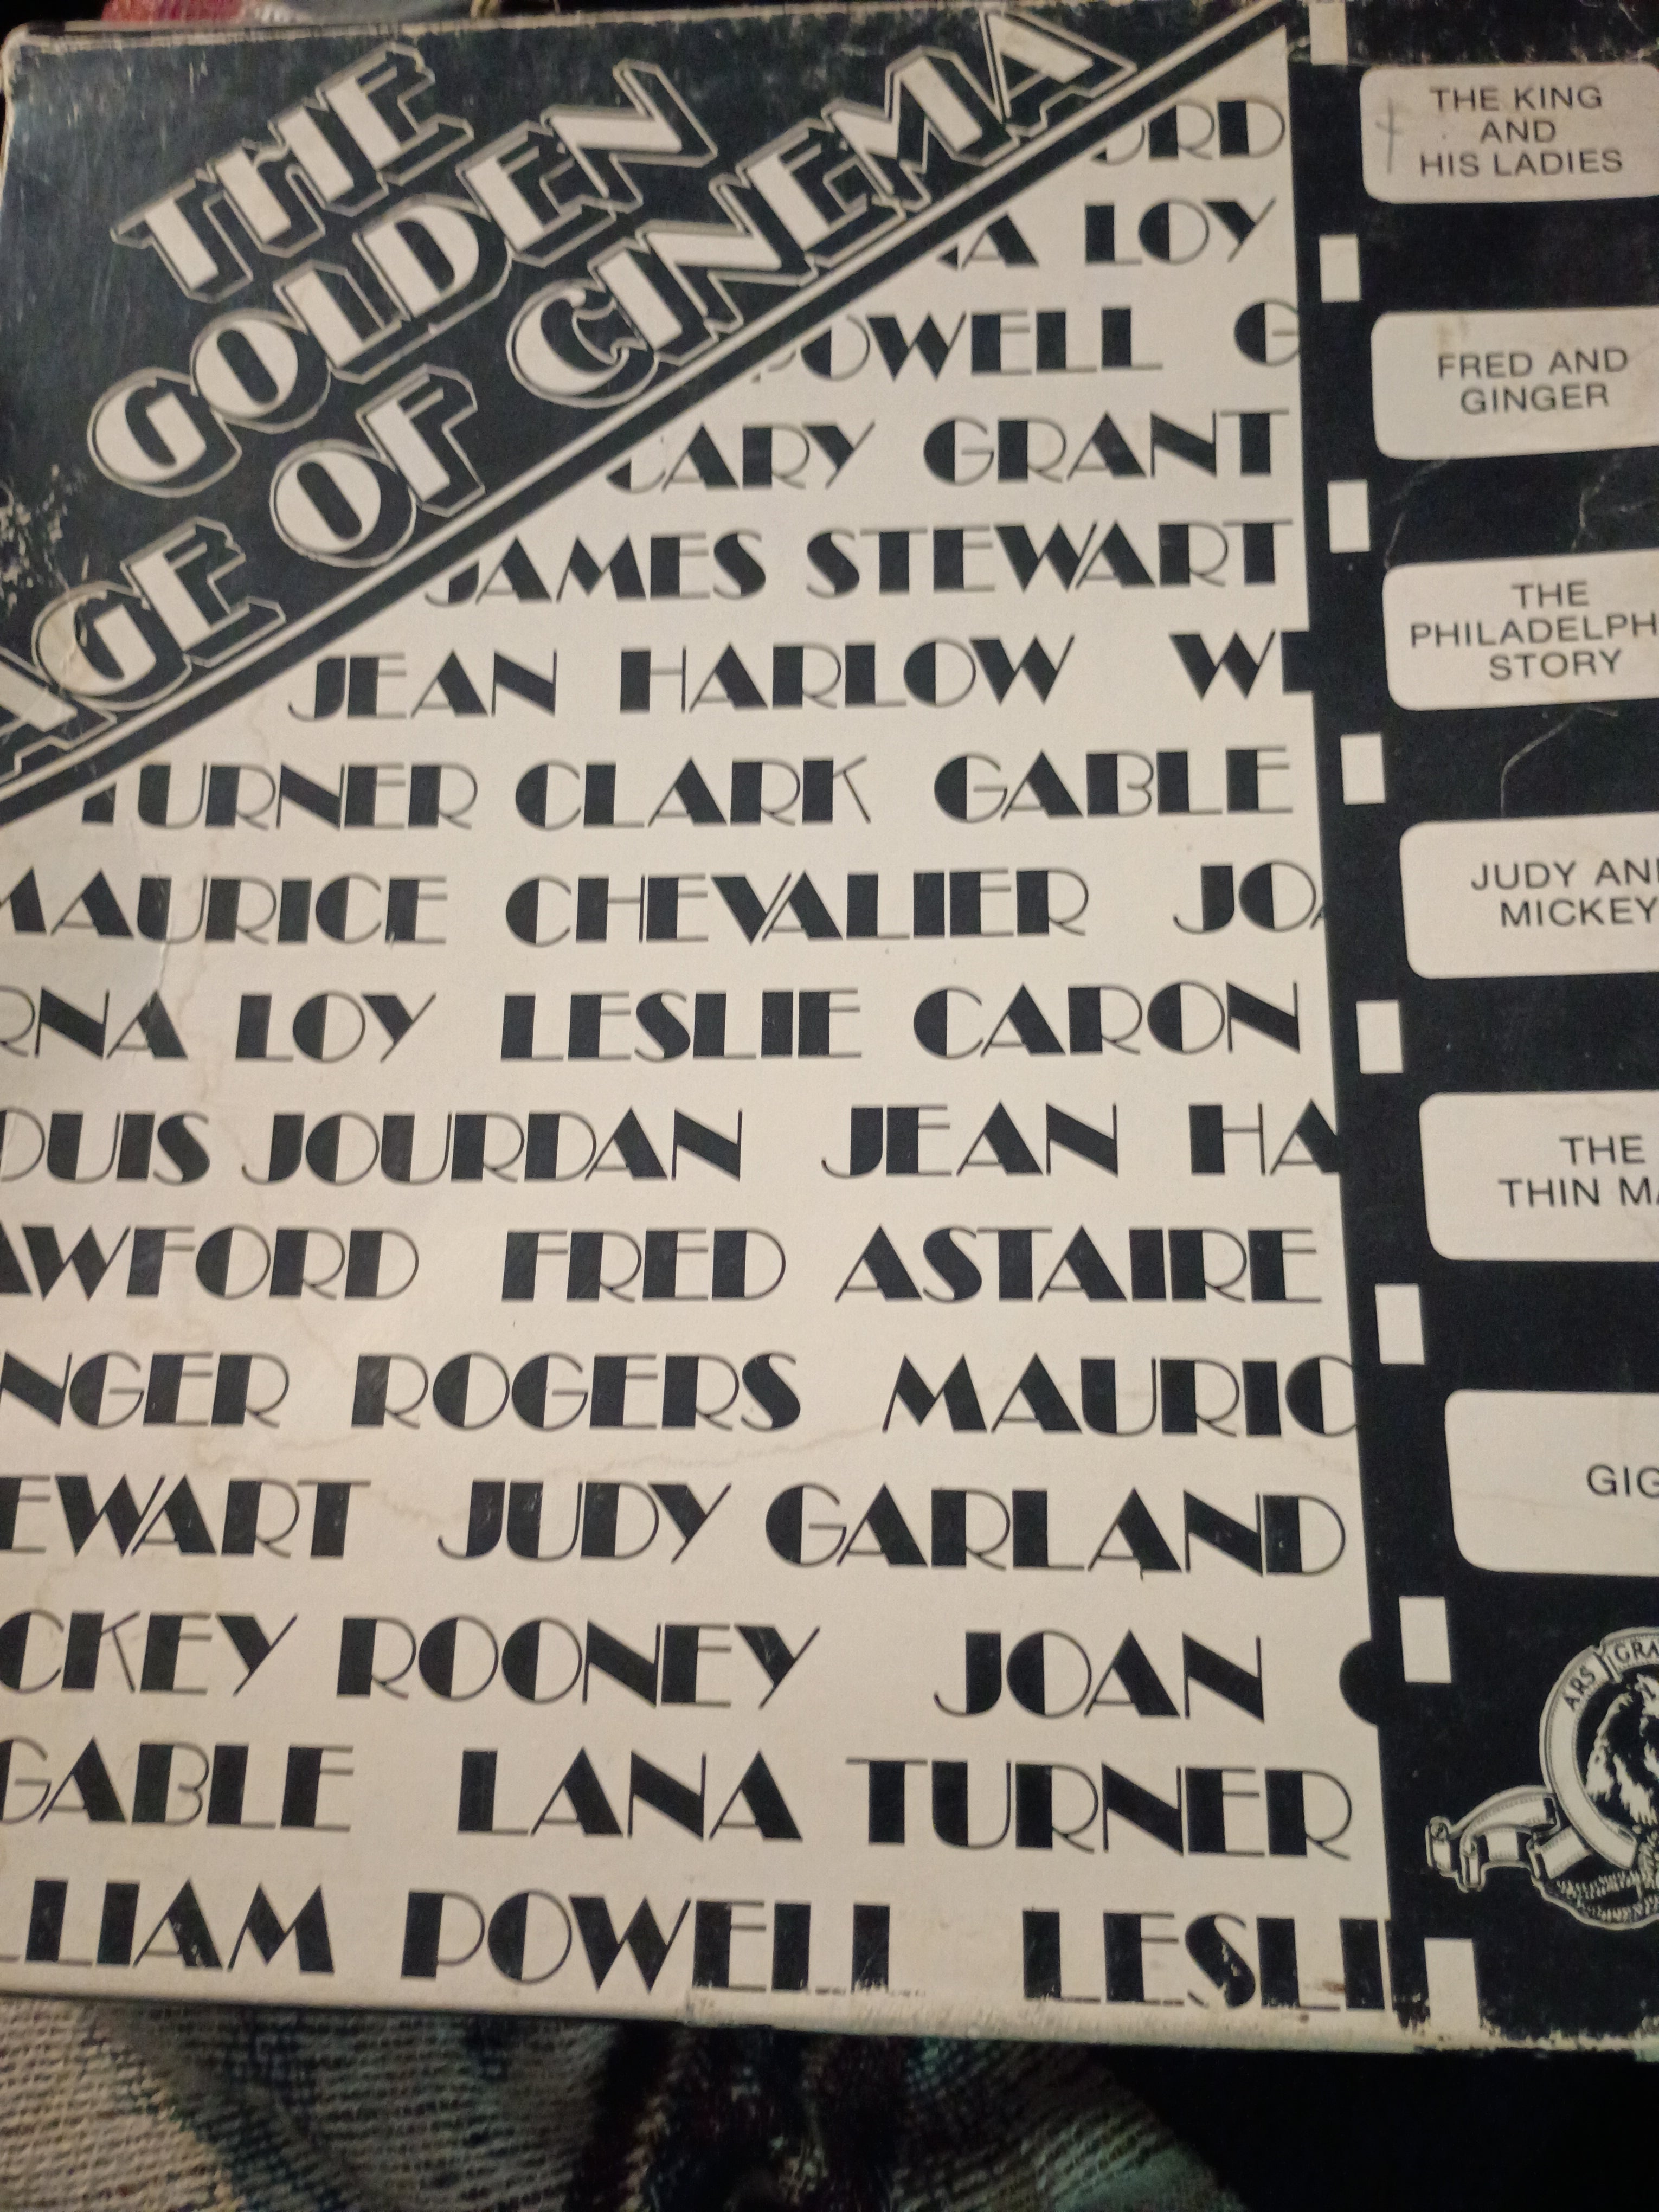 THE
GOLDEN
AGE OF CINEMA
LOY
POWELL G
CARY GRANT
JAMES STEWART
JEAN HARLOW WI
TURNER CLARK GABLE
MAURICE CHEVALIER JOA
RNA LOY LESLIE CARON
OUIS JOURDAN JEAN HA
AWFORD FRED ASTAIRE
NGER ROGERS MAURIC
EWART JUDY GARLAND
CKEY ROONEY JOAN
GABLE LANA TURNER
LLIAM POWELL LESLIE
THE KING
AND
HIS LADIES
FRED AND
GINGER
THE
PHILADELPH
STORY
JUDY AN
MICKEY
THE
THIN MA
GIG
ARS GRA